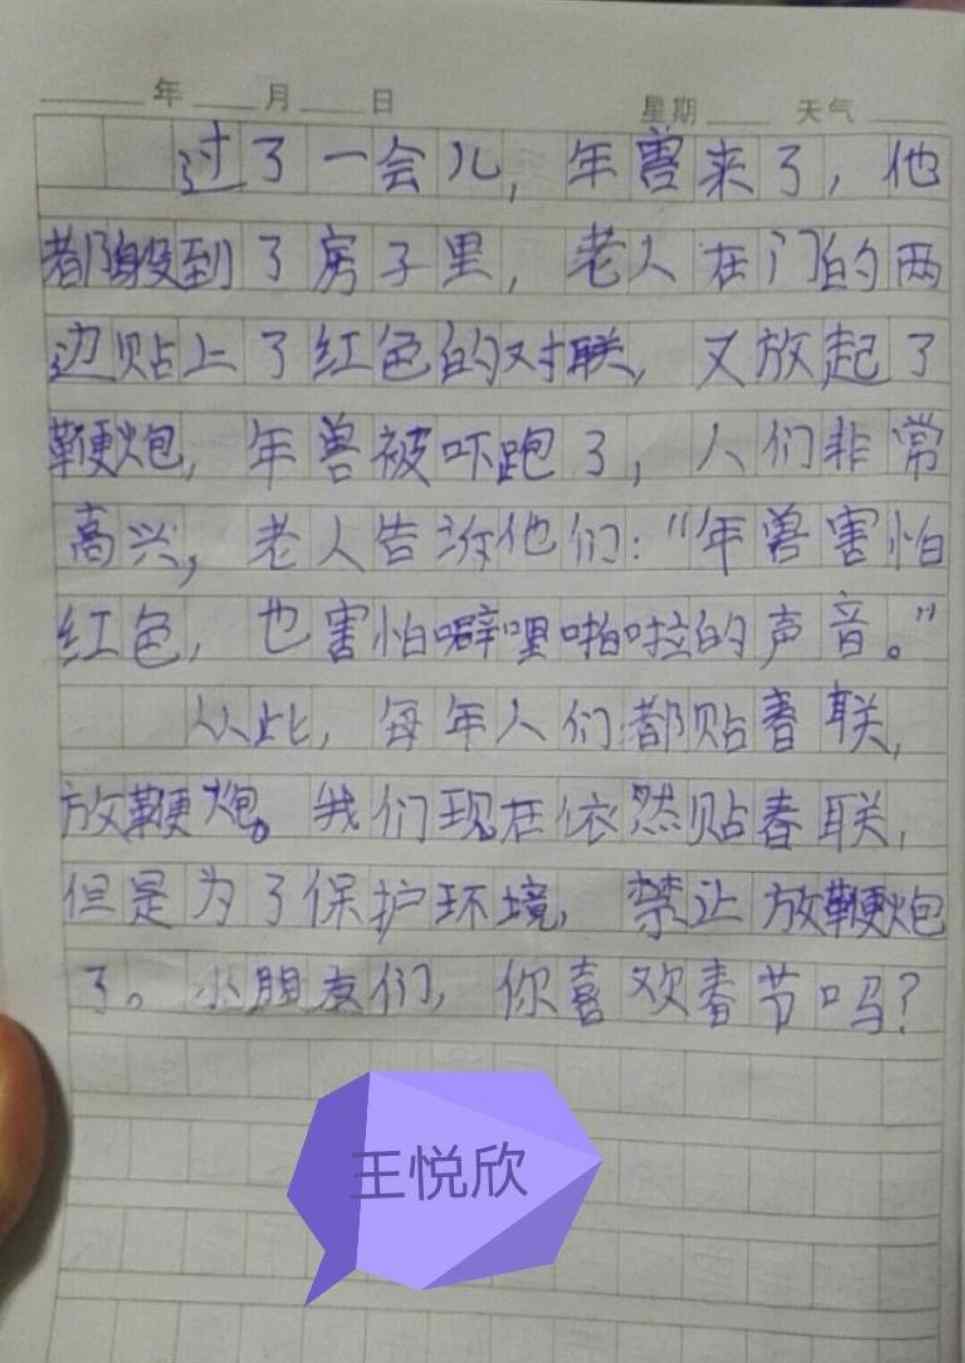 年 月 日 星期 天气
过了一会儿，年兽来了，他
都躲到了房子里，老人在门的两
边贴上了红色的对联，又放起了
鞭炮，年兽被吓跑了，人们非常
高兴，老人告诉他们：“年兽害怕
红色，也害怕噼哩啪啦的声音。”
从此，每年人们都贴春联，
放鞭炮。我们现在依然贴春联，
但是为了保护环境，禁止放鞭炮
了。小朋友们，你喜欢春节吗？
王悦欣